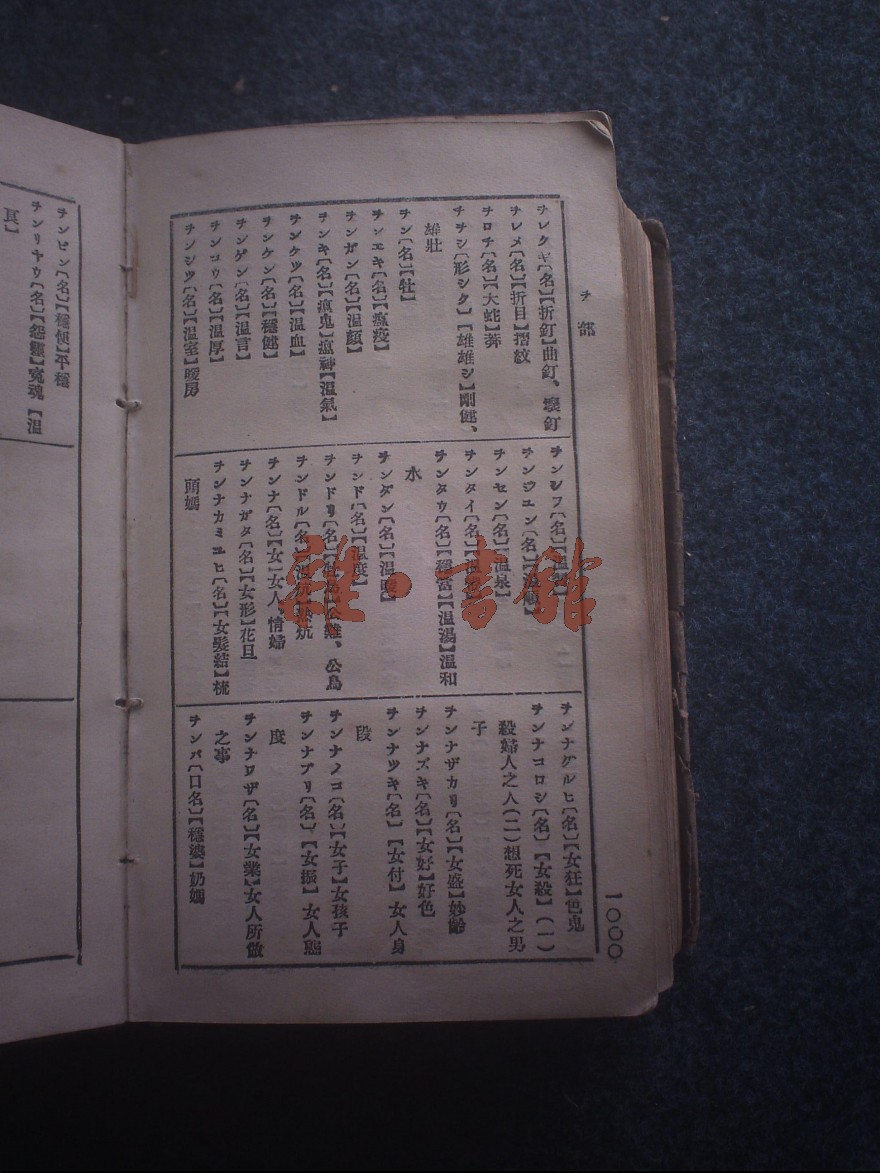 ヲ部
一〇〇〇
ヲレクギ〔名〕【折釘】曲釘、壞釘
ヲレメ〔名〕【折目】摺紋
ヲロチ〔名〕【大蛇】蟒
ヲヲシ〔形シク〕【雄雄シ】剛健、
雄壯
ヲン〔名〕【牡】
ヲンエキ〔名〕【瘟疫】
ヲンガン〔名〕【温顏】
ヲンキ〔名〕【瘟鬼】瘟神【温氣】
ヲンケツ〔名〕【温血】
ヲンケン〔名〕【穩健】
ヲンゲン〔名〕【温言】
ヲンコウ〔名〕【温厚】
ヲンシツ〔名〕【温室】暖房
ヲンシフ〔名〕
ヲンジユン〔名〕
ヲンセン〔名〕【温泉】
ヲンタイ〔名〕【温
ヲンタウ〔名〕【穩當】【温湯】温和
水
ヲンダン〔名〕【温暖】
ヲンド〔名〕【温度】
ヲンドリ〔名〕、公鳥
ヲンドル〔名〕【温炕】熱炕
ヲンナ〔名〕【女】女人、情婦
ヲンナガタ〔名〕【女形】花旦
ヲンナカミユヒ〔名〕【女髮結】梳
頭媽
ヲンナグルヒ〔名〕【女狂】色鬼
ヲンナコロシ〔名〕【女殺】(一)
殺婦人之人(二)想死女人之男
子
ヲンナザカリ〔名〕【女盛】妙齡
ヲンナズキ〔名〕【女好】好色
ヲンナツキ〔名〕【女付】女人身
段
ヲンナノコ〔名〕【女子】女孩子
ヲンナブリ〔名〕【女振】女人態
度
ヲンナワザ〔名〕【女業】女人所做
之事
ヲンバ〔口名〕【穩婆】奶媽
ヲンビン〔名〕【穩便】平穩
ヲンリヤウ〔名〕【怨靈】冤魂【温
良】
雜·書館